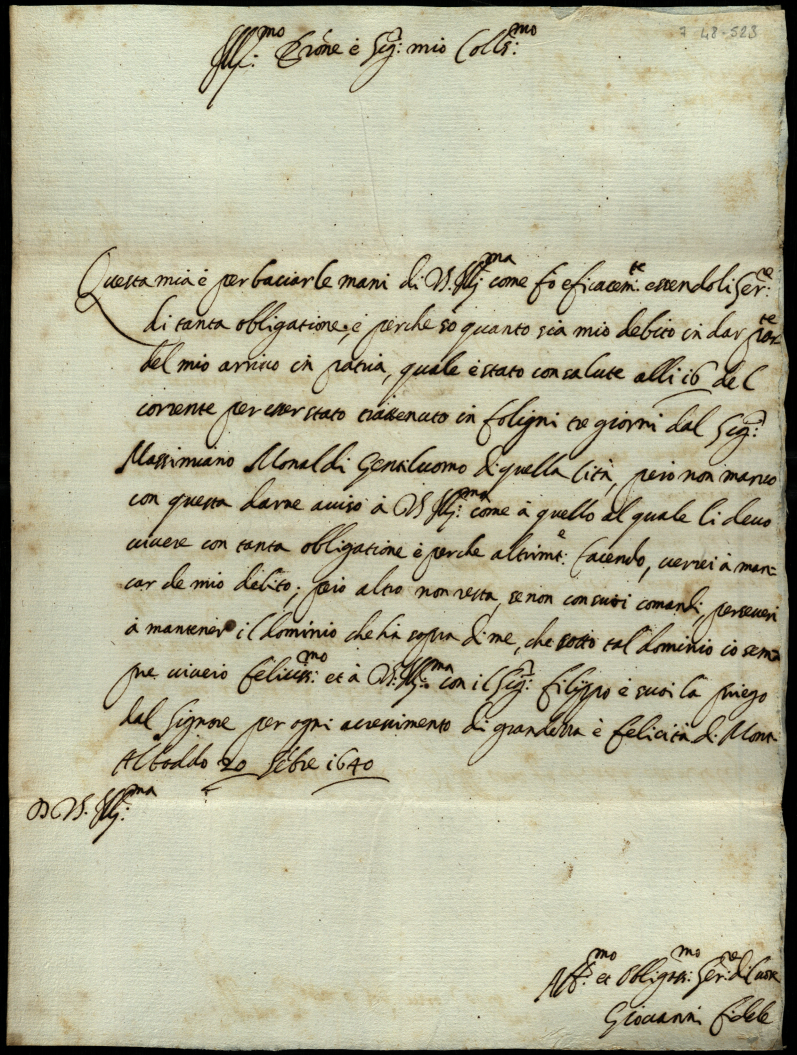 7 48-523
Ill.mo Prōne è Sig.r mio Coll.mo
Questa mia è per baciar le mani di V.S. Ill.ma come fo eficacem.te essendoli Ser.re
di tanta obligatione, è perche sò quanto sia mio debito in dar par.te
del mio arrivo in patria, quale è stato con salute alli 16 del
corrente per esser stato trattenuto in foligni tre giorni dal Sig.r
Massimiano Monaldi Gentiluomo di quella Cità, però non manco
con questa darne auiso à V.S. Ill.ma come à quello al quale li deuo
uiuere con tanta obligatione è perche altrim.te facendo, uerrei à man=
car de mio debito; però altro non resta, se non con suoi comandi, perseueri
à mantener il dominio che hà sopra di me, che sotto tal dominio io sem=
pre uiuerò feliciss.mo et à V.S. Ill.ma con il Sig.r Filippo è suoi la priego
dal Signore per ogni accrescimento di grandezza è felicità di Mont.
Alboddo 20 Settre 1640
D V.S. Ill.ma
Aff.mo et Obligatiss.mo Ser.re di Cuore
Giouanni fidele